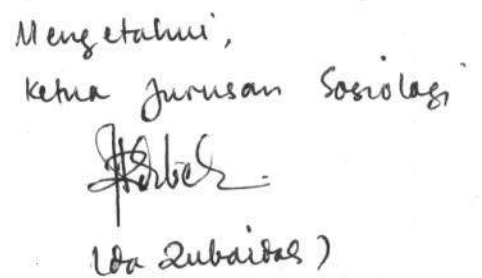 Mengetahui,
Ketua Jurusan Sosiologi
(Ida Zubaidah)